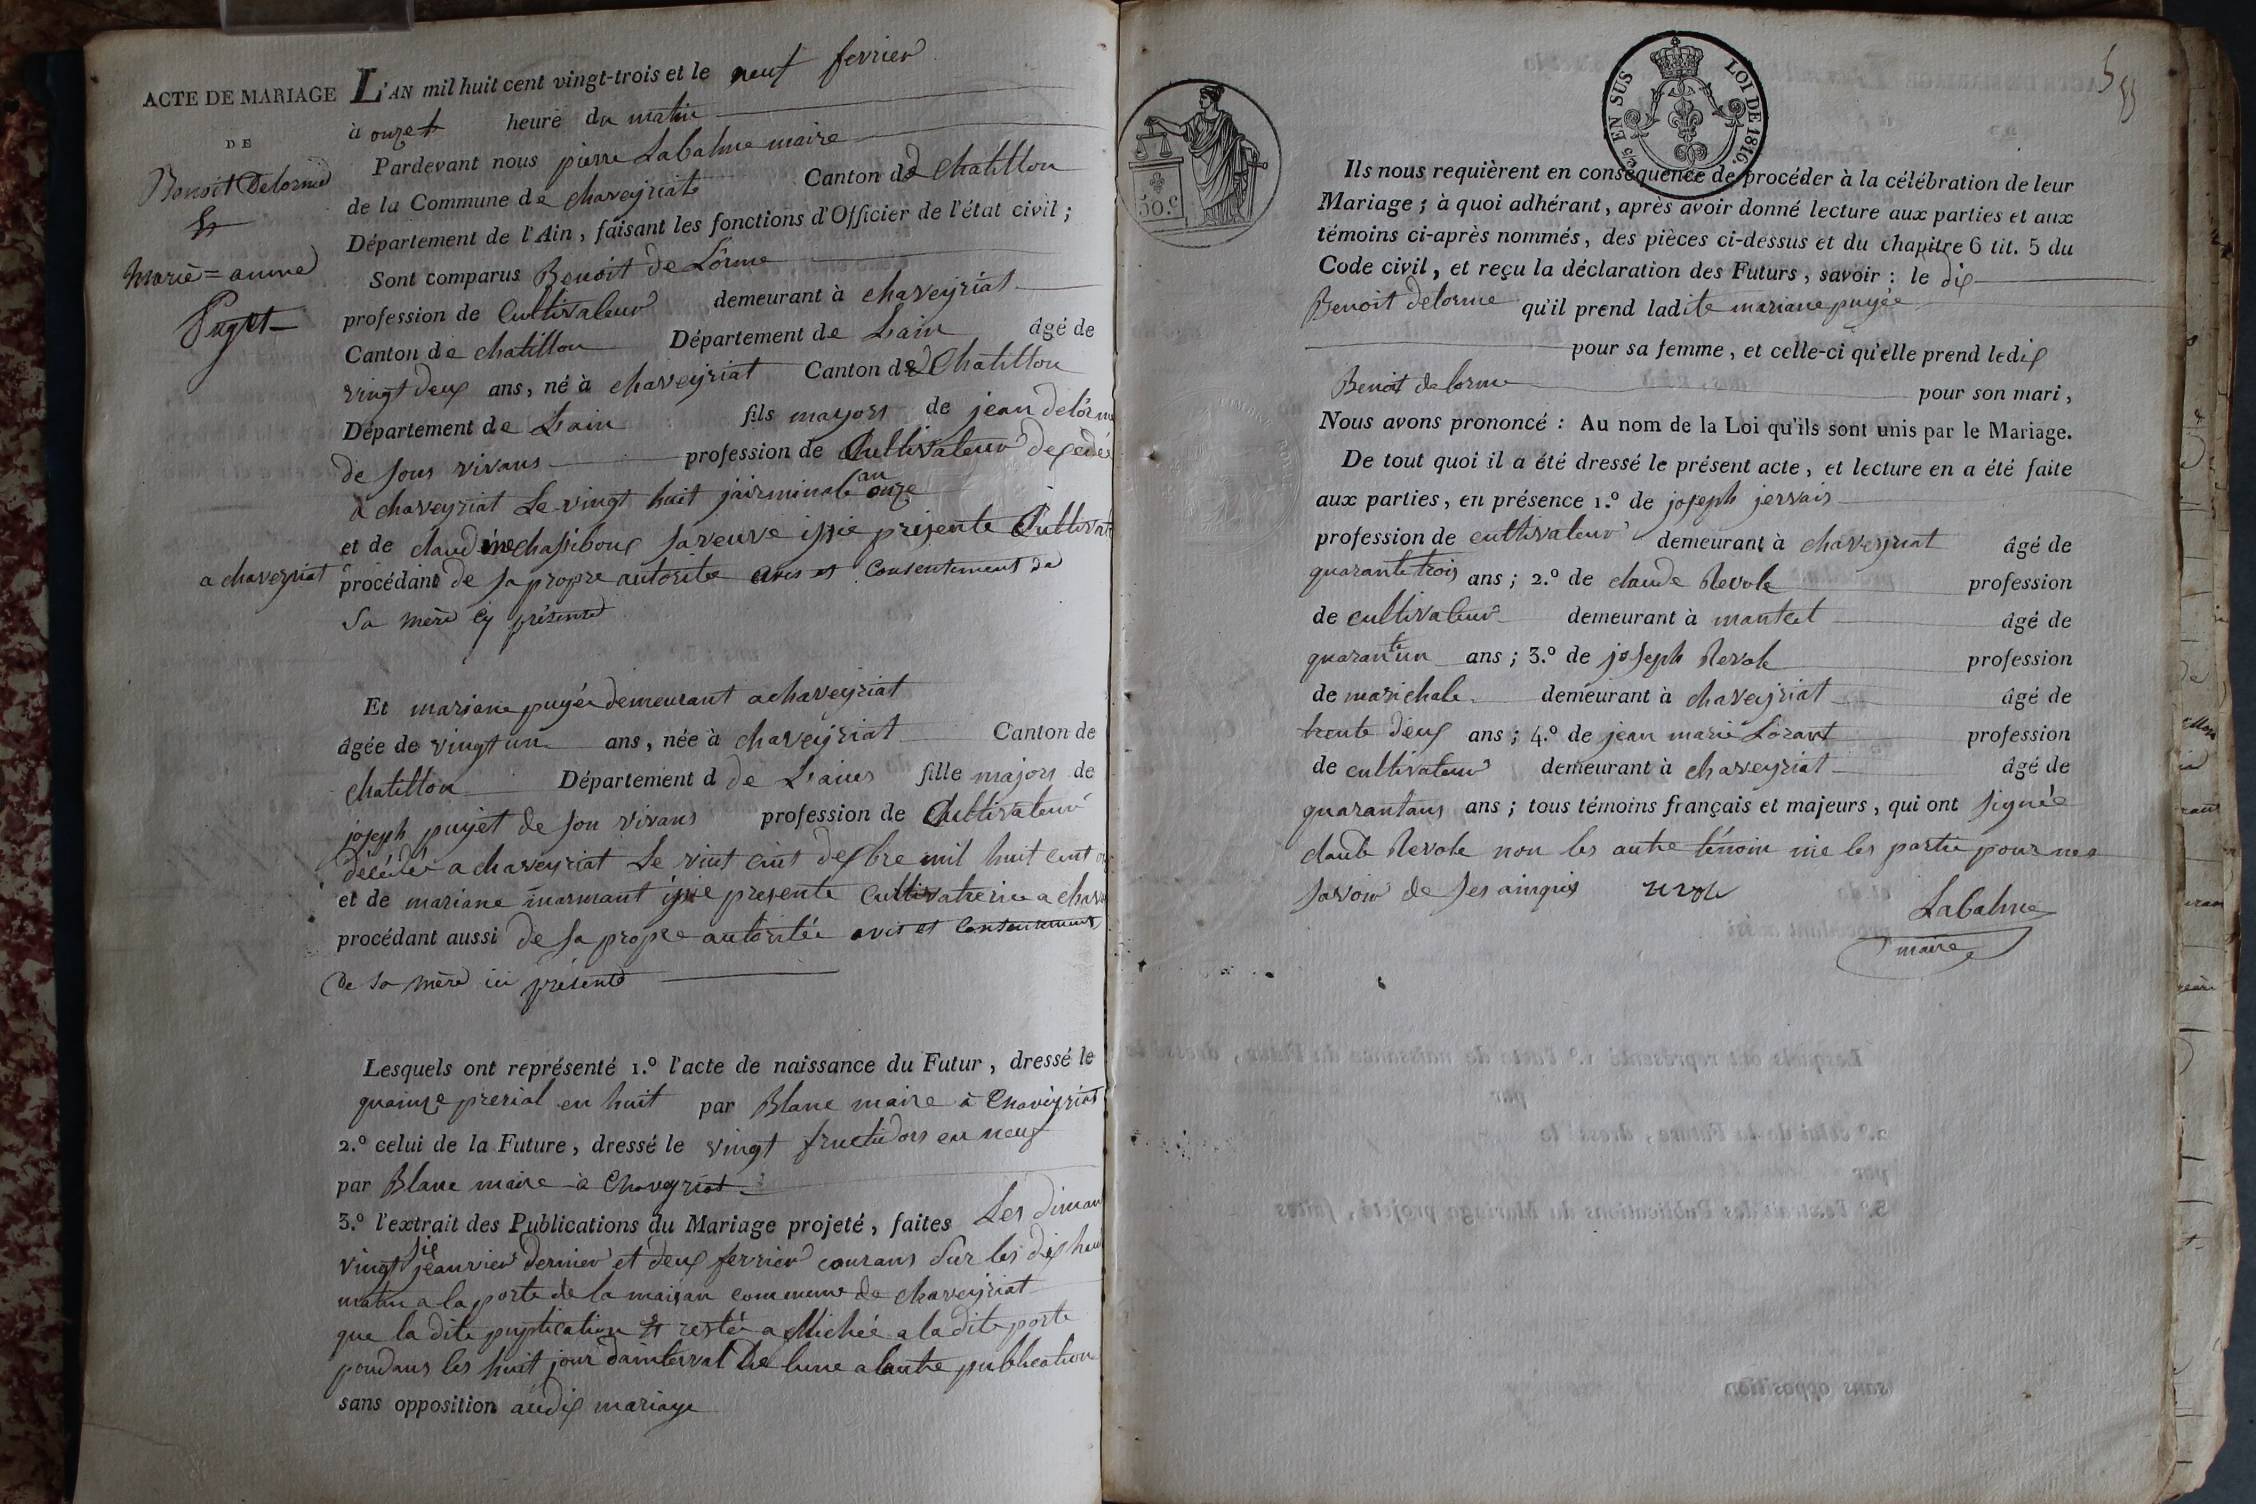 ACTE DE MARIAGE
DE
Benoit Delorme
&
Marie = anne
Puget
L'AN mil huit cent vingt-trois et le neuf fevrier
à onze h heure du matin
Pardevant nous pierre Labalme maire
de la Commune de chaveyriat Canton de Chatillon
Département de l'Ain, faisant les fonctions d'Officier de l'état civil ;
Sont comparus Benoit de Lorme
profession de Cultivateur demeurant à chaveyriat
Canton de chatillon Département de Lain âgé de
vingt deux ans, né à chaveyriat Canton de Chatillon
Département de Lain fils mayors de jean delorme
de sous vivans profession de Cultivateur decedé
a chaveyriat Le vingt huit jairminale an onze
et de claudine chassiboux sa veuve issie présente Cultivat
a chaveyriat
procédant de sa propre autorite avis et Consentement de
Sa mère cy présente
Et mariane puyée demeurant a chaveyriat
âgée de vingt un ans, née à chaveyriat Canton de
chatillon Département d de Lains fille majors de
joseph puyet de son vivans profession de Cultivateur
décédée a chaveyriat Le vint cint dexbre mil huit cent
et de mariane marmant issie presente Cultivatrice a chav
procédant aussi de sa propre autoritée avis et Consentement
de sa mère ici présente
Lesquels ont représenté 1.º l'acte de naissance du Futur, dressé le
quainze prerial en huit par Blanc maire à Chaveyriat
2.º celui de la Future, dressé le vingt fructidors en neuf
par Blanc maire à Chaveyriat
3.º l'extrait des Publications du Mariage projeté, faites Les diman
vingt sie jeanvier dernier et deux fevrier courans Sur les dix heu
matin a la porte de la maison commune de chaveyriat
que la dite puplication et restée affichée a la dite porte
pendans les huit jour d'ainterval de lune a lautre publication
sans opposition audix mariage
5
50.c
EN SUS LOI DE 1816.
Ils nous requièrent en conséquence de procéder à la célébration de leur
Mariage ; à quoi adhérant, après avoir donné lecture aux parties et aux
témoins ci-après nommés, des pièces ci-dessus et du chapitre 6 tit. 5 du
Code civil, et reçu la déclaration des Futurs, savoir : le dix
Benoit delorme qu'il prend ladite mariane puyée
pour sa femme, et celle-ci qu'elle prend ledix
Benoit delorme pour son mari,
Nous avons prononcé : Au nom de la Loi qu'ils sont unis par le Mariage.
De tout quoi il a été dressé le présent acte, et lecture en a été faite
aux parties, en présence 1.º de joseph jervais
profession de cultivateur demeurant à chaveyriat âgé de
quarante trois ans ; 2.º de claude Revole profession
de cultivateur demeurant à mantet âgé de
quarante un ans ; 3.º de joseph Revole profession
de marichale demeurant à chaveyriat âgé de
trente deux ans ; 4.º de jean marie Lorant profession
de cultivateur demeurant à chaveyriat âgé de
quarantans ans ; tous témoins français et majeurs, qui ont signée
claude Revole non les autre témoin nie les partie pour nes
savoir de ses ainquis revole
Labalme
maire